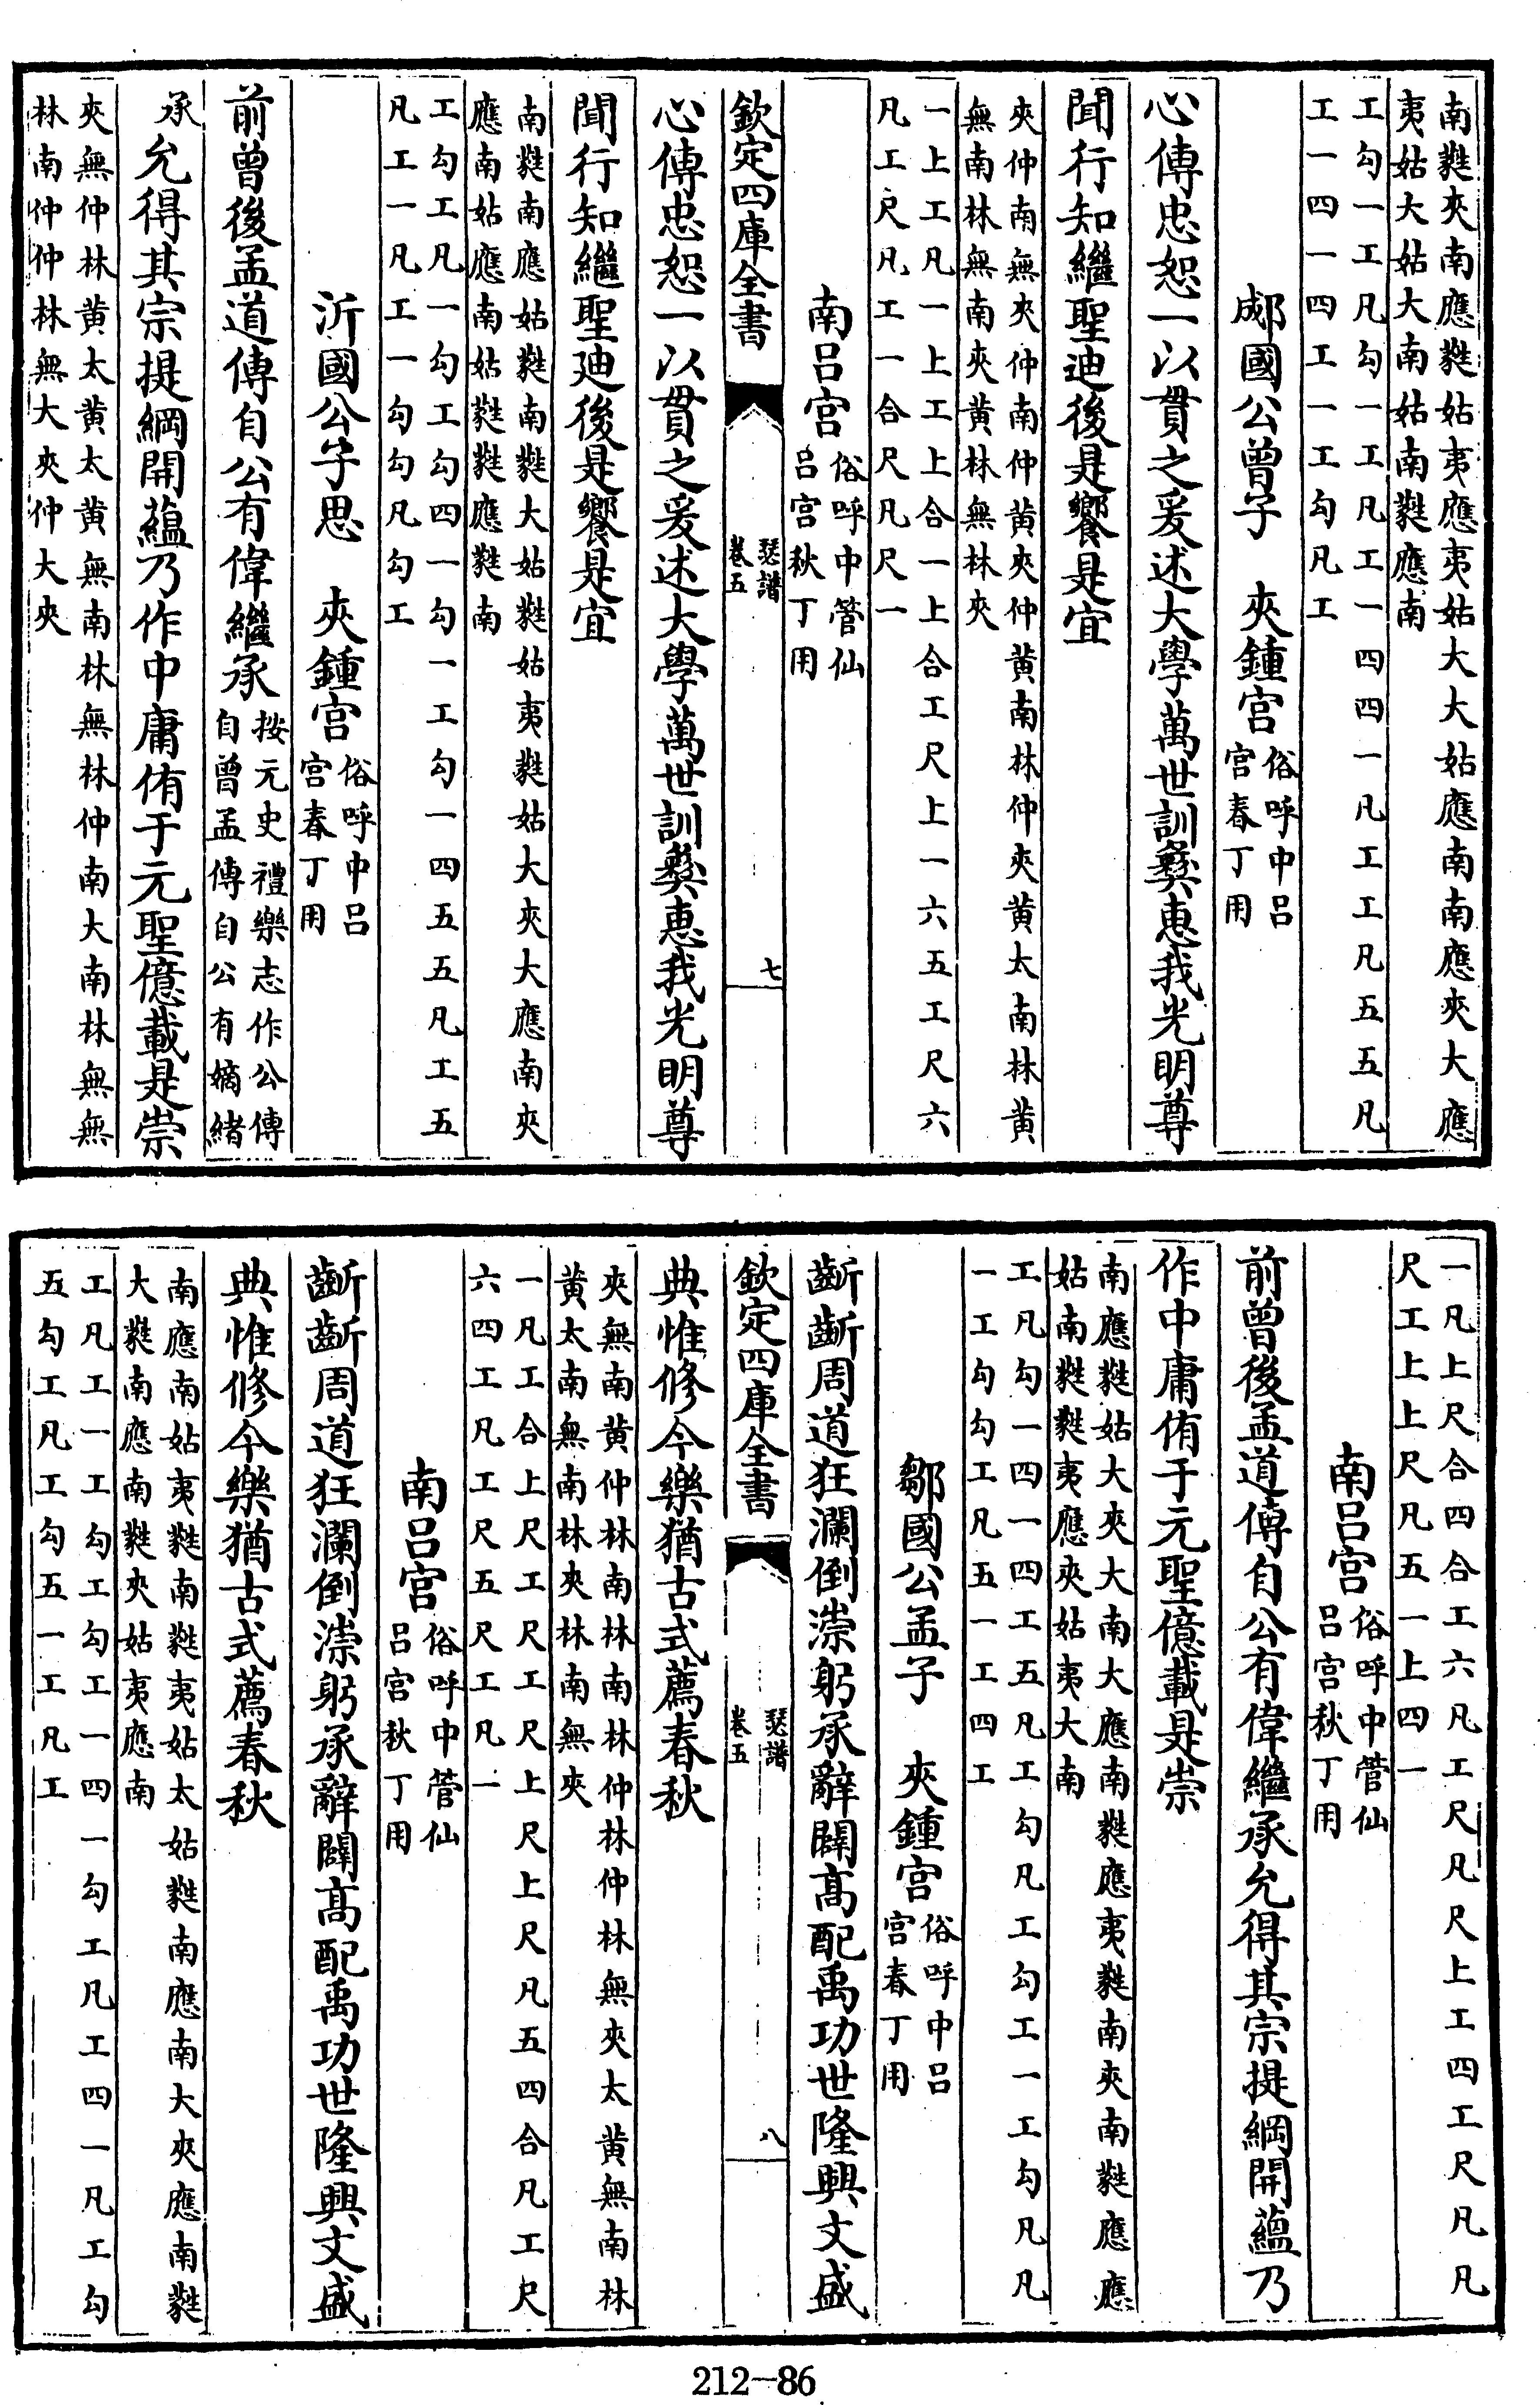 南蕤夾南應蕤姑夷應夷姑大大姑應南南應夾大應
夷姑大姑大南姑南蕤應南
工勾一工凡勾一工凡工一四四一凡工工凡五五凡
工一四一四工一工勾凡工
郕國公曾子　夾鍾宮俗呼中呂
宮春丁用
心傳忠恕一以貫之爰述大學萬世訓彝惠我光明尊
聞行知繼聖迪後是饗是宜
夾仲南無夾仲南仲黃夾仲黃南林仲夾黃太南林黃
無南林無南夾黃林無林夾
一上工凡一上工上合一上合工尺上一六五工尺六
凡工尺凡工一合尺凡尺一
南呂宮俗呼中管仙
呂宮秋丁用
欽定四庫全書
瑟譜
卷五
七
心傳忠恕一以貫之爰述大學萬世訓彝惠我光明尊
聞行知繼聖廸後是饗是宜
南蕤南應姑蕤南蕤大姑蕤姑夷蕤姑大夾大應南夾
應南姑應南姑蕤蕤應蕤南
工勾工凡一勾工勾四一勾一工勾一四五五凡工五
凡工一凡工一勾勾凡勾工
沂國公子思　夾鍾宮俗呼中呂
宮春丁用
前曾後孟道傳自公有偉繼承按元史禮樂志作公傳
自曾孟傳自公有嫡緒
承允得其宗提綱開蘊乃作中庸侑于元聖億載是崇
夾無仲林黃太黃太黃無南林無林仲南大南林無無
林南仲仲林無大夾仲大夾
一凡上尺合四合工六凡工尺凡尺上工四工尺凡凡
尺工上上尺凡五一上四一
南呂宮俗呼中管仙
呂宮秋丁用
前曾後孟道傳自公有偉繼承允得其宗提綱開蘊乃
作中庸侑于元聖億載是崇
南應蕤蕤姑大夾大南大應南蕤應夷蕤南夾南蕤應應
姑南蕤蕤夷應夾姑夷大南
工凡勾一四一四工五凡工勾凡工勾工一工勾凡凡
一工勾勾工凡五一工四工
鄒國公孟子　夾鍾宮俗呼中呂
宮春丁用
齗齗周道狂瀾倒漴躬承辭闢高配禹功世隆興文盛
欽定四庫全書
瑟譜
卷五
八
典惟修今樂猶古式薦春秋
夾無南黃仲林南林南林仲林仲林無夾太黃無南林
黃太南無南林夾林南無夾
一凡工合上尺工尺工尺上尺上尺凡五四合凡工尺
六四工凡工尺五尺工凡一
南呂宮俗呼中管仙
呂宮秋丁用
齗齗周道狂瀾倒漴躬承辭闢高配禹功世隆興文盛
典惟修今樂猶古式薦春秋
南應南姑夷蕤南蕤夷姑太姑蕤南應南大夾應南蕤
大蕤南應南蕤夾姑夷應南
工凡工一工勾工勾工一四一勾工凡工四一凡工勾
五勾工凡工勾五一工凡工
212—86